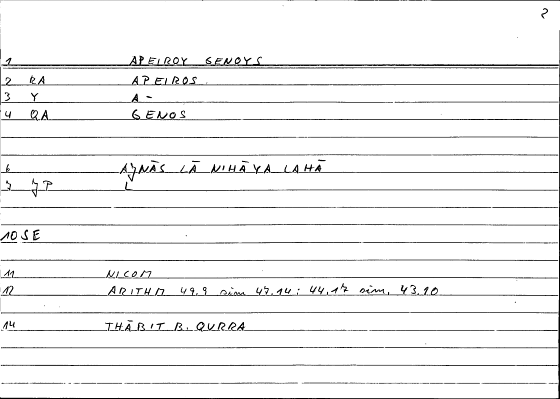 2
1 APEIROY GENOYS
2 RA APEIROS
3 Y A-
4 QA GENOS
6 AJNĀS LĀ NIHĀYA LAHĀ
7 JP L
10 SE
11 NICOM
12 ARITHM 49.9 sim 47.14; 44.17 sim. 43.10
14 THĀBIT B. QURRA